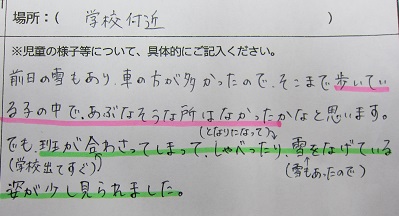 場所：( 学校付近 )
※児童の様子等について、具体的にご記入ください。
前日の雪もあり、車の方が多かったので、そこまで歩いてい
る子の中で、あぶなそうな所はなかったかなと思います。
(となりになって)
でも、班が合わさってしまって、しゃべったり、雪をなげている
(学校出てすぐ) (雪もあったので)
姿が少し見られました。